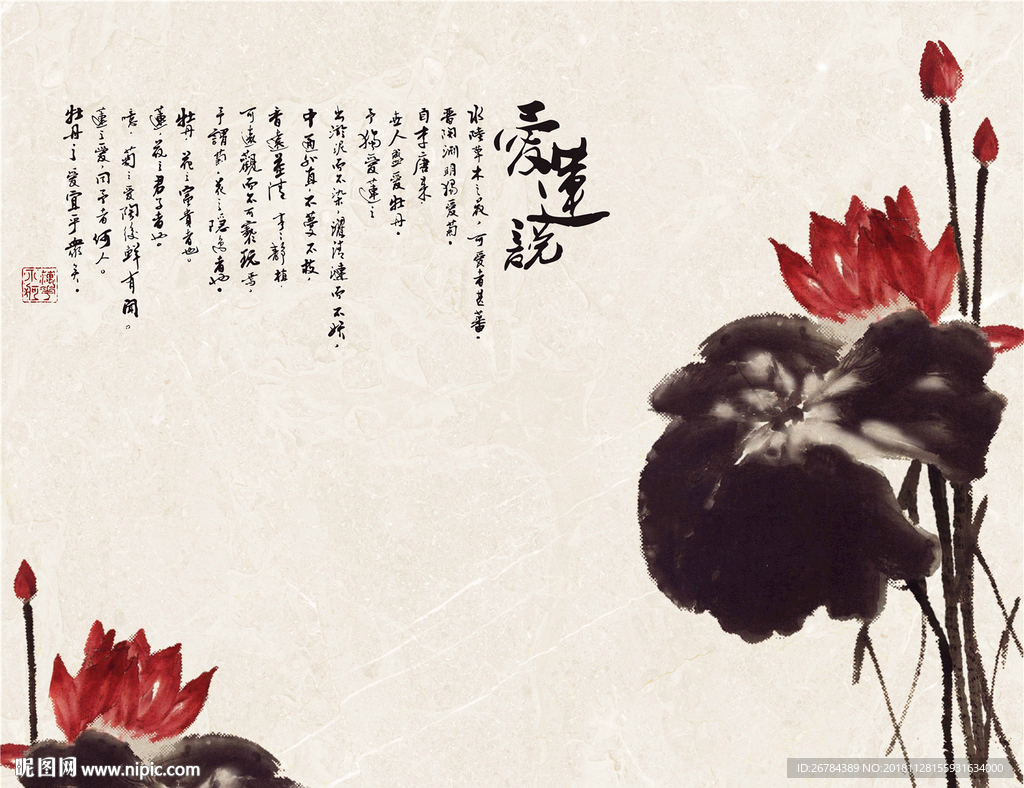 愛蓮說
水陸草木之花，可愛者甚蕃。
晋陶淵明獨愛菊。
自李唐來
世人盛愛牡丹。
予獨愛蓮之
出淤泥而不染，濯清漣而不妖，
中通外直，不蔓不枝，
香遠益清，亭亭靜植，
可遠觀而不可褻玩焉。
予謂菊，花之隱逸者也。
牡丹，花之富貴者也。
蓮，花之君子者也。
噫，菊之愛陶後鮮有聞。
蓮之愛，同予者何人。
牡丹之愛宜乎衆矣。
昵图网 www.nipic.com
ID:26784389 NO:20181128155931634000